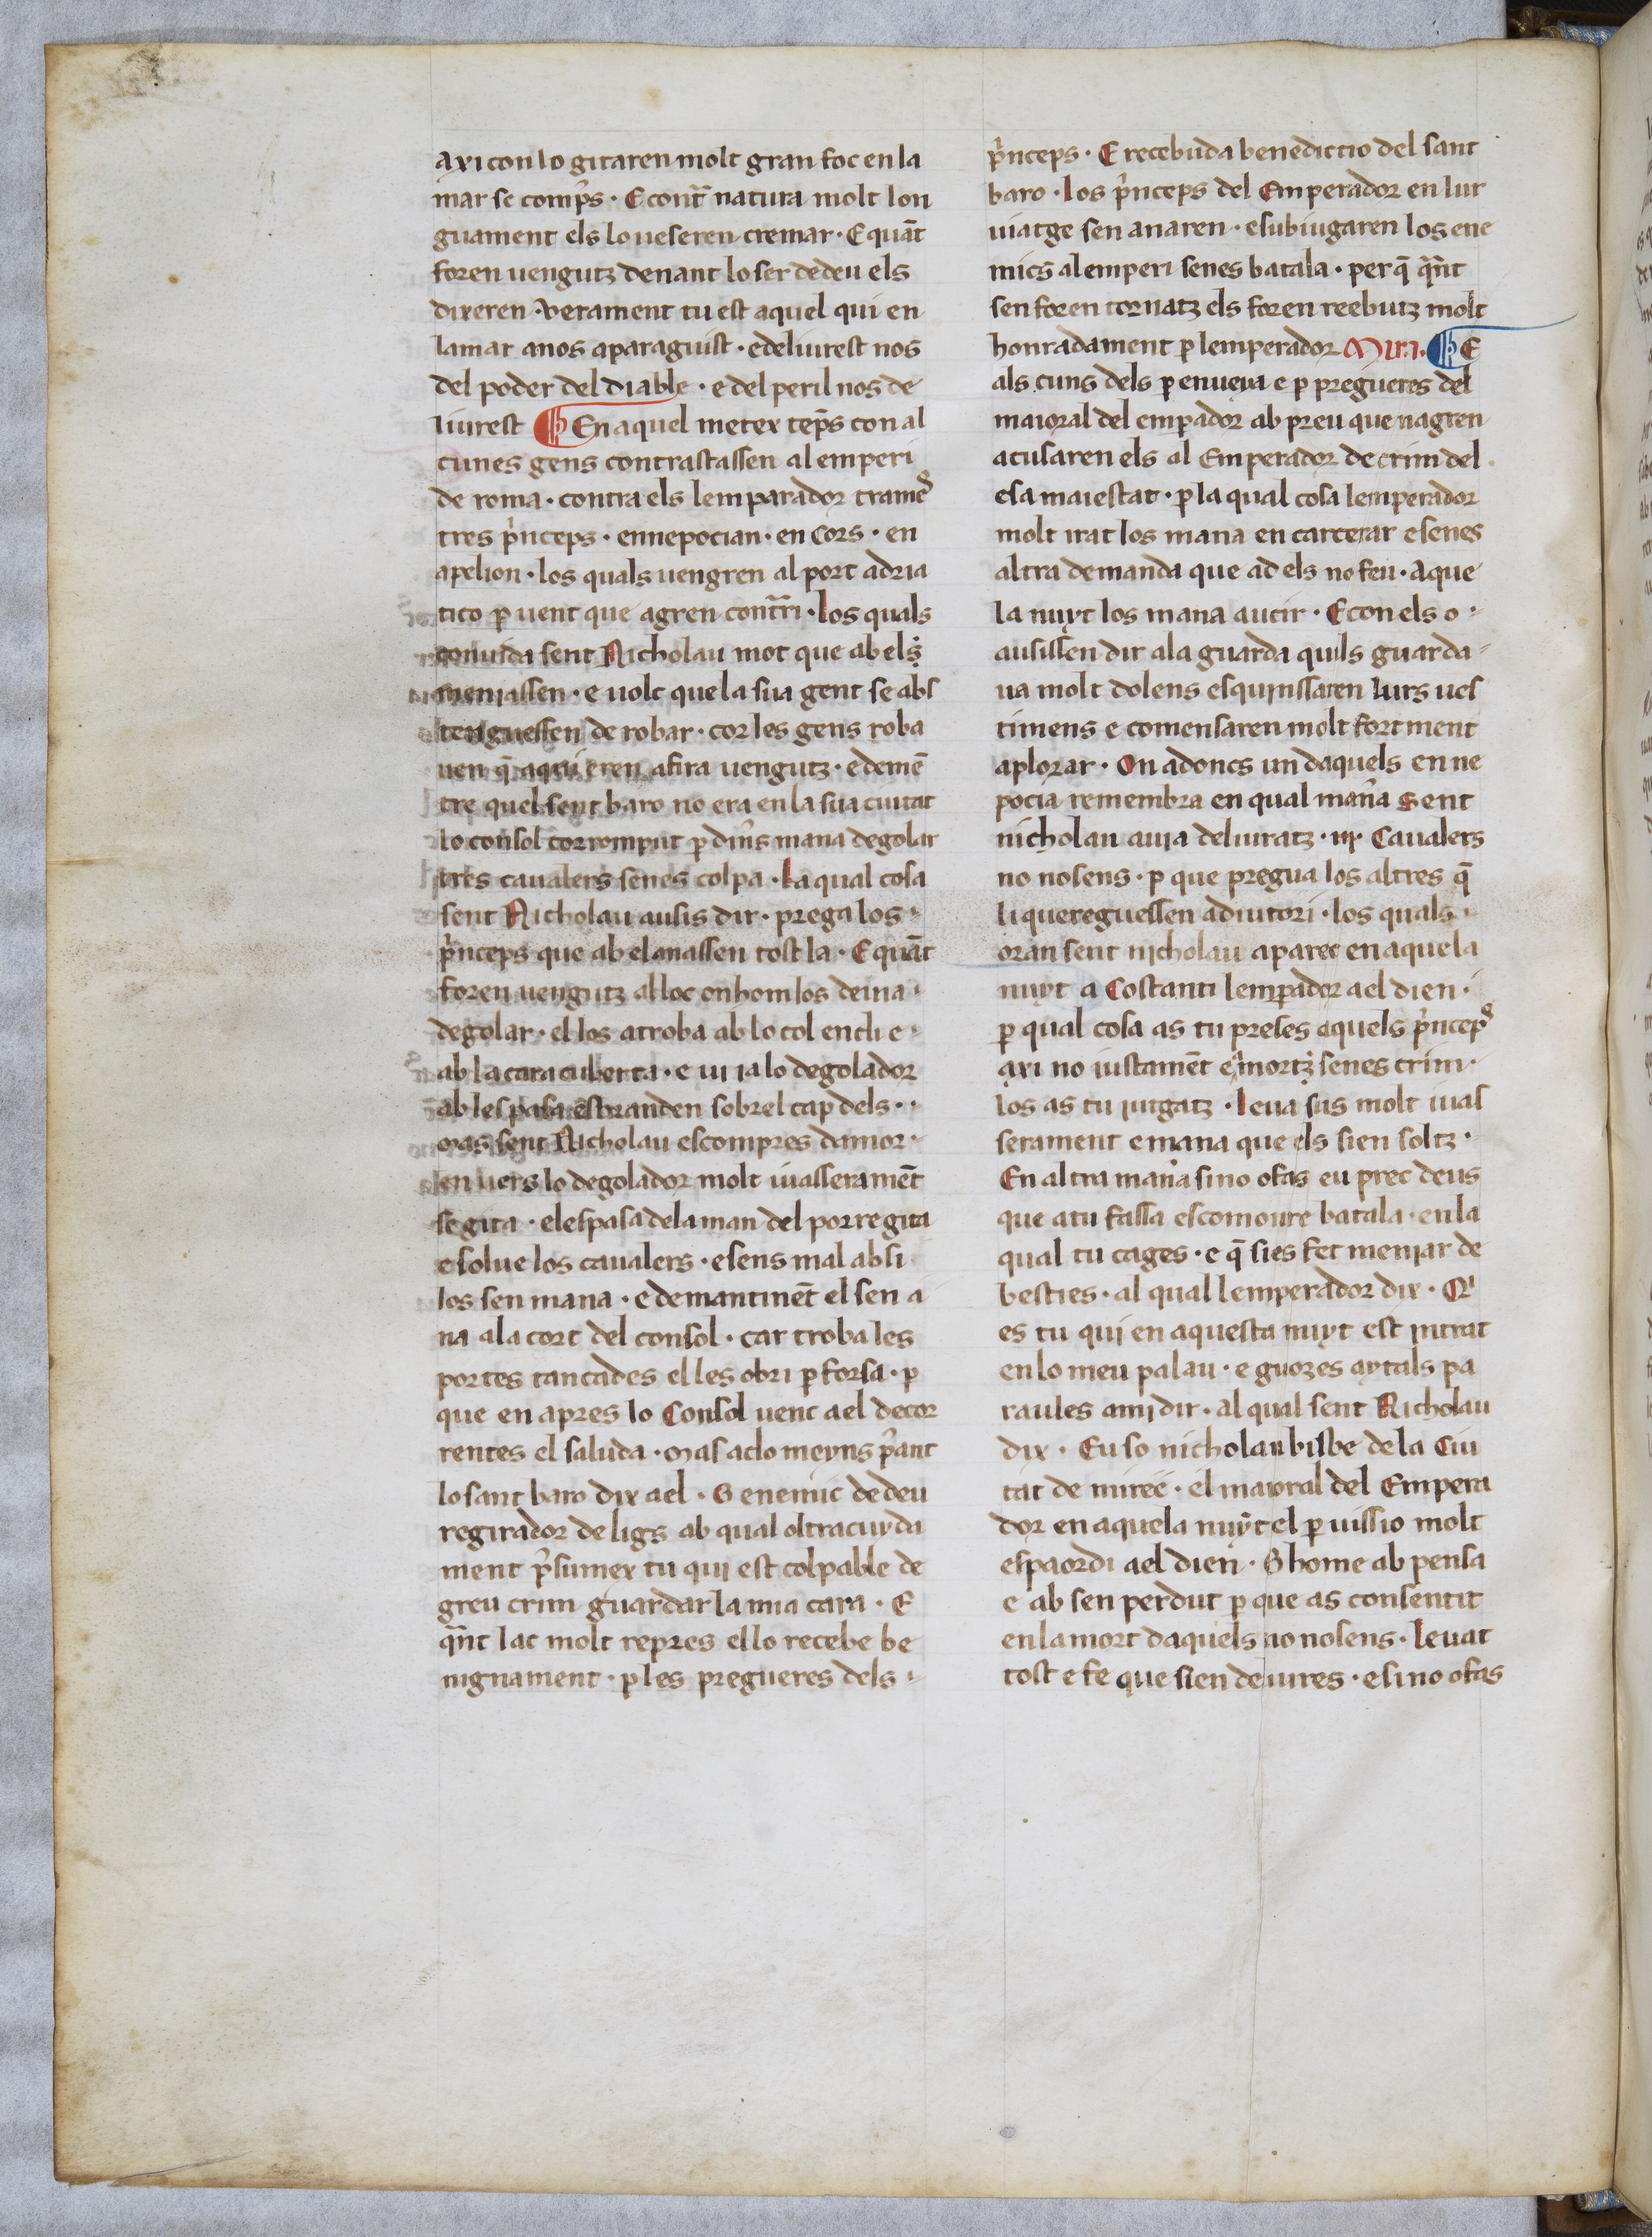 axi con lo gitaren molt gran foc en la
mar se comp̃s · E cont̃ natura molt lon
guament els lo ueseren cremar · E quãt
foren uengutz denant lo ser de deu els
dixeren · verament tu est aquel qui en
la mar a nos aparaguist · e deliurest nos
del poder del diable · e del peril nos de
liurest ¶ En aquel metex tep̃s con al
cunes gens contrastassen al emperi
de roma · contra els lemparador trames
tres p̃nceps · en nepocian · en Cors · en
apelion · los quals uengren al port adria
tico ꝑ uent que agren cont̃ri · Los quals
conuida sent Nicholau mot que ab els
meniassen · e uolt que la sua gent se abs
tenguessen de robar · cor les gens roba
uen q̃ aqui eren a fira uengutz · e demẽ
tre quel sent baro no era en la sua ciutat
lo consol corromput ꝑ din̾s mana degolar
tres caualers senes colpa · La qual cosa
sent Nicholau ausis dir · prega los
p̃nceps que ab el anassen tost la · E quãt
foren uengutz al loc on hom los deuia
degolar · el los atroba ab lo col encli e
ab la cara cuberta · e ui ia lo degolador
ab lespasa esbranden sobrel cap dels ·
Mas sent Nicholau escompres damor ·
en uers lo degolador molt iuasseramẽt
se gita · e lespasa de la man del por regita
e solue los caualers · e sens mal ab si
los sen mana · e demantinẽt el sen a
na a la cort del consol · Car troba les
portes tancades el les obri ꝑ forsa · ꝑ
que en apres lo Consol uenc a el decor
rentes el saluda · Mas aclo meyns p̃ant
lo sant baro dix a el · O enemic de deu
regirador de ligs ab qual oltracuyda
ment p̃sumex tu qui est colpable de
greu crim guardar la mia cara · E
q̃nt lac molt repres el lo recebe be
nignament · ꝑ les pregueres dels
p̃nceps · E recebuda benedictio del sant
baro · los p̃nceps del Emperador en lur
uiatge sen anaren · e subiugaren los ene
mics al emperi senes batala · per q̃ q̃nt
sen foren tornatz els foren reebutz molt
honradament ꝑ lemperador ¶ E
als cuns dels ꝑ enueia e ꝑ pregueres del
maioral del empador ab preu que nagren
acusaren els al Emperador de crim del
esa maiestat · ꝑ la qual cosa lemperador
molt irat los mana en carcerar e senes
altra demanda que ad els no feu · Aque
la nuyt los mana aucir · E con els o
ausissen dir a la guarda quils guarda
ua molt dolens esquinssaren lurs ues
timens e comensaren molt fortment
a plorar · On adoncs un daquels en ne
pocia remembra en qual man̾a Sent
nicholau auia deliuratz · iii · Caualers
no nosens · ꝑ que pregua los altres q̃
li quereguessen adiutori · los quals
oran sent nicholau aparec en aquela
nuyt a Costanti lemꝑador a el dien ·
ꝑ qual cosa as tu preses aquels p̃nceps
axi no iustamẽt e a mortz senes crim ·
los as tu iutgatz · Leua sus molt iuas
serament e mana que els sien soltz ·
En altra man̾a si no o fas eu prec deus
que a tu fassa escomoure batala · en la
qual tu cages · e q̃ sies fet meniar de
besties · al qual lemperador dix · Q̾
es tu qui en aquesta nuyt est intrat
en lo meu palau · e guozes aytals pa
raules a mi dir · al qual sent Nicholau
dix · Eu so nicholau bisbe de la Ciu
tat de miree · el maioral del Empera
dor en aquela nuyt el ꝑ uissio molt
espaordi a el dien · O home ab pensa
e ab sen perdut ꝑ que as consentit
en la mort daquels no nosens · Leuat
tost e fe que sien deiures · e si no o fas